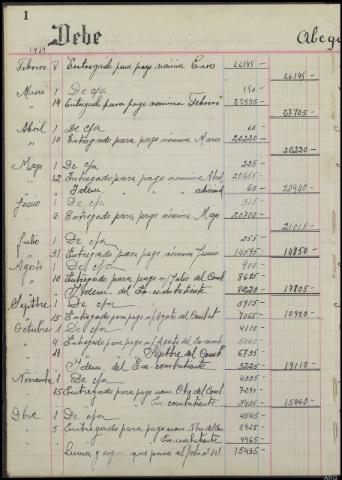 1
Debe
Abego
1939
Febrero 8 Entregado para pago nómina Enero 26145-
26145-
Marzo 1 De c/a 150-
" 14 Entregado para pago nomina Febrero 27555-
27705-
Abril 1 De c/a 60-
" 10 Entregado para pago nómina Marzo 20220-
20220-
Mayo 1 De c/a 225-
" 12 Entregado para pago nómina Abril 20655-
" Idem. " " adicional 60 20940-
Junio 1 De c/a 315-
" 6 Entregado para pago nómina Mayo 20700-
21015-
Julio 1 De c/a 255-
" 31 Entregado para pago nómina Junio 14595 14850-
Agosto 1 De c/a
" 10 Entregado para pago n/ Julio del Comb. 8625-
" Idem. del Ex-combatiente 8220 17805-
Septbre 1 De c/a 3915-
" 15 Entregado para pago n/ Agosto del Combat 7065 10980-
Octubre 1 De c/a 4110-
" 4 Entregado para pago n/ Agosto del Ex-comb
" 21 " " " Septbre del Comb. 6735-
" Idem. del Ex-combatiente 3225 19110-
Noviembre 1 De c/a
" 25 Entregado para pago nom. Otbe del Comb. 7290-
" " " Ex-combatiente 3435 15060-
Dbre 1 De c/a 4545-
" 5 Entregado para pago nom. Nbre del Com 5925-
" " Ex-combatiente 4965-
Suma y sigue que pasa al folio nº 101 15435-